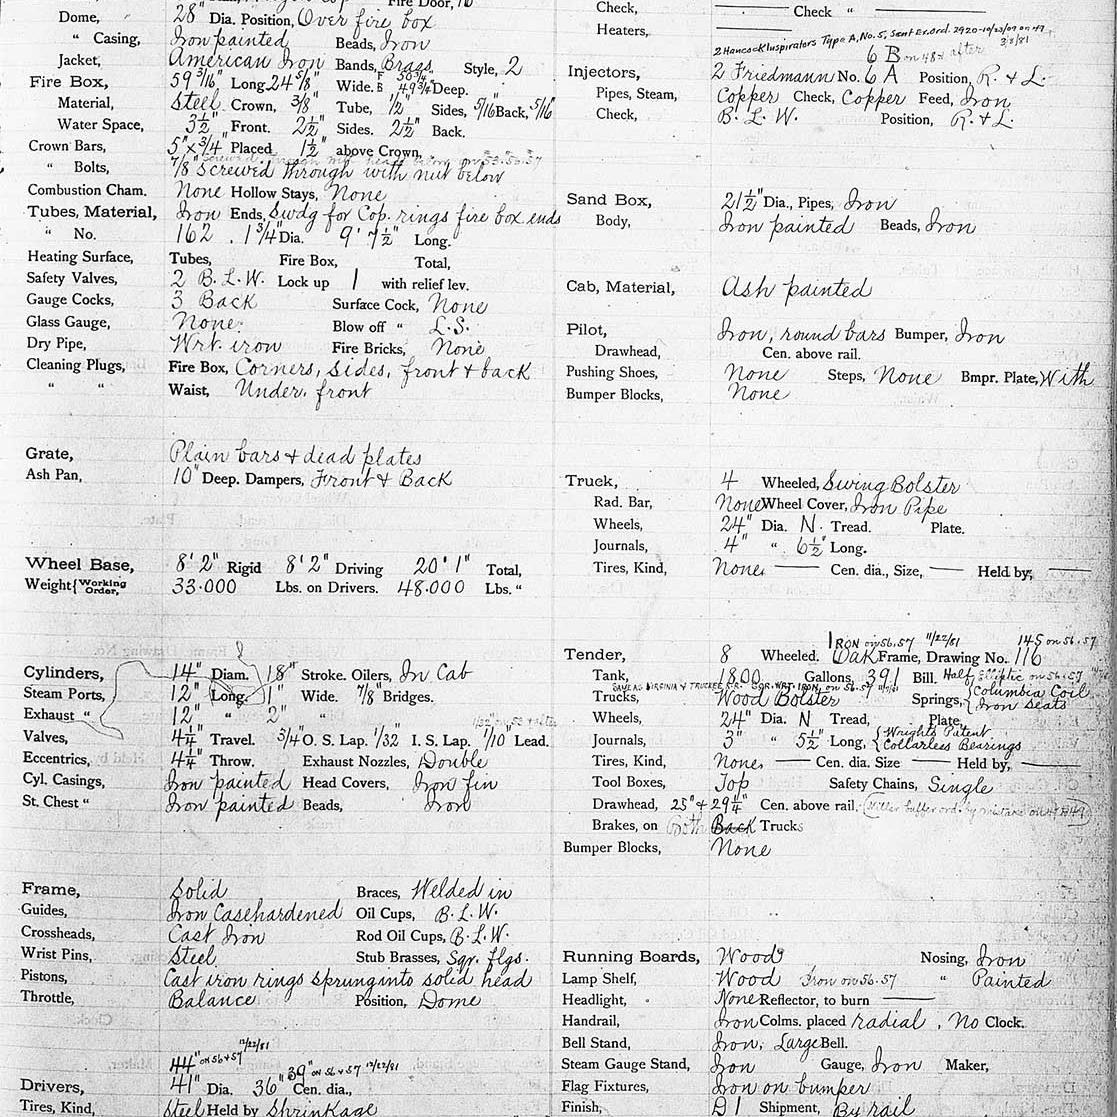 Fire Door,
Dome, 28" Dia. Position, Over fire box
" Casing, Iron painted Beads, Iron
Jacket, American Iron Bands, Brass Style, 2
Fire Box, 59 3/16" Long 24 5/8" Wide. F 50 3/4" B 49 3/4" Deep.
Material, Steel Crown, 3/8" Tube, 1/2" Sides, 5/16" Back, 5/16
Water Space, 3½" Front. 2½" Sides. 2½" Back.
Crown Bars, 5" x 3/4" Placed 1½" above Crown,
" Bolts, 7/8" Screwed through with nut below
Combustion Cham. None Hollow Stays, None
Tubes, Material, Iron Ends, Swdg for Cop. rings fire box ends
" No. 162 . 1 3/4" Dia. 9' 7½" Long.
Heating Surface, Tubes, Fire Box, Total,
Safety Valves, 2 B.L.W. Lock up 1 with relief lev.
Gauge Cocks, 3 Back Surface Cock, None
Glass Gauge, None. Blow off " L.S.
Dry Pipe, Wrt. iron Fire Bricks, None
Cleaning Plugs, Fire Box, Corners, Sides, front + back
" " Waist, Under. front
Grate, Plain bars + dead plates
Ash Pan, 10" Deep. Dampers, Front + Back
Wheel Base, 8' 2" Rigid 8' 2" Driving 20' 1" Total,
Weight { Working Order, 33.000 Lbs. on Drivers. 48.000 Lbs. "
Cylinders, 14" Diam. 18" Stroke. Oilers, In Cab
Steam Ports, 12" Long. 1" Wide. 7/8" Bridges.
Exhaust " 12" " 2" "
Valves, 4¼" Travel. 3/4" O. S. Lap. 1/32 I. S. Lap. 1/10" Lead.
Eccentrics, 4¼" Throw. Exhaust Nozzles, Double
Cyl. Casings, Iron painted Head Covers, Iron fin
St. Chest " Iron painted Beads, Iron
Frame, Solid Braces, Welded in
Guides, Iron Casehardened Oil Cups, B.L.W.
Crossheads, Cast Iron Rod Oil Cups, B.L.W.
Wrist Pins, Steel Stub Brasses, Sqr. flgs.
Pistons, Cast iron rings sprung into solid head
Throttle, Balance Position, Dome
12/22/81
44" on 56+57 39" on 56+57 12/22/81
Drivers, 41" Dia. 36" Cen. dia.,
Tires, Kind, Steel Held by Shrinkage
Check, Check "
Heaters,
2 Hancock Inspirators Type A, No. 5, Sent Ex. Ord. 2920-10/23/09 on 47
6 B on 48+ after 3/8/81
Injectors, 2 Friedmann No. 6 A Position, R. + L.
Pipes, Steam, Copper Check, Copper Feed, Iron
Check, B.L.W. Position, R. + L.
Sand Box, 21½" Dia., Pipes, Iron
Body, Iron painted Beads, Iron
Cab, Material, Ash painted
Pilot, Iron, round bars Bumper, Iron
Drawhead, Cen. above rail.
Pushing Shoes, None Steps, None Bmpr. Plate, With
Bumper Blocks, None
Truck, 4 Wheeled, Swing Bolster
Rad. Bar, None Wheel Cover, Iron Pipe
Wheels, 24" Dia. N. Tread. Plate.
Journals, 4" " 6½" Long.
Tires, Kind, None. Cen. dia., Size, Held by,
Iron on 56.57 11/22/81 145 on 56.57
Tender, 8 Wheeled. Oak Frame, Drawing No. 116
Tank, 1800 Gallons, 391 Bill. Half Elliptic on 56.57
Same as Virginia + Truckee R.R. Sqr. Wrt. Iron on 56.57
Trucks, Wood Bolster Springs, { Columbia Coil Iron Seats
Wheels, 24" Dia. N Tread, Plate,
Journals, 3" " 5½" Long, { Wrights Patent Collarless Bearings
Tires, Kind, None. Cen. dia. Size Held by,
Tool Boxes, Top Safety Chains, Single
Drawhead, 25" + 29¼" Cen. above rail. (Miller buffer ord. by mistake on
Brakes, on Both Back Trucks
Bumper Blocks, None
Running Boards, Wood Nosing, Iron
Lamp Shelf, Wood Iron on 56.57 " Painted
Headlight, None Reflector, to burn
Handrail, Iron Colms. placed radial , No Clock.
Bell Stand, Iron, Large Bell.
Steam Gauge Stand, Iron Gauge, Iron Maker,
Flag Fixtures, Iron on bumper
Finish, D 1 Shipment, By rail